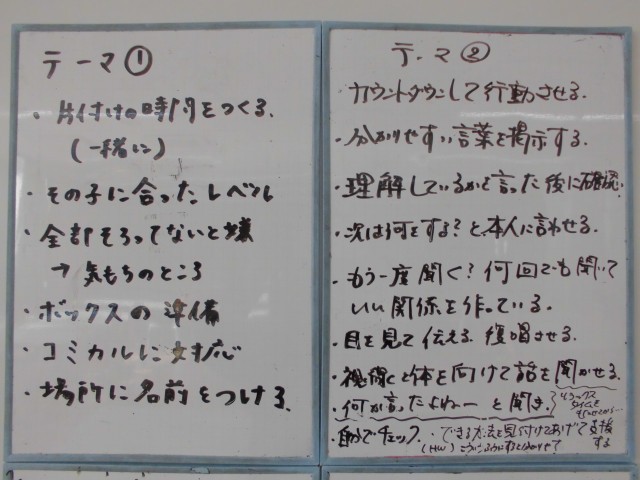 テーマ①
・片付けの時間をつくる.
(一緒に)
・その子に合ったレベル
・全部そろってないと嫌
→ 気もちのところ
・ボックスの準備
・コミカルに対応
・場所に名前をつける.
テーマ②
・カウントダウンして行動させる.
・分かりやすい言葉を掲示する.
・理解しているかを言った後に確認.
・次は何をする?と、本人に言わせる.
・もう一度聞く? 何回でも聞いて
いい関係を作っている.
・目を見て伝える. 復唱させる.
・視線と体を向けて話を聞かせる.
・何か言ったよねー と聞き、
リラックス
タイムを
・自分でチェック. ・できる方法を見付けてあげて支援
する
(HW)